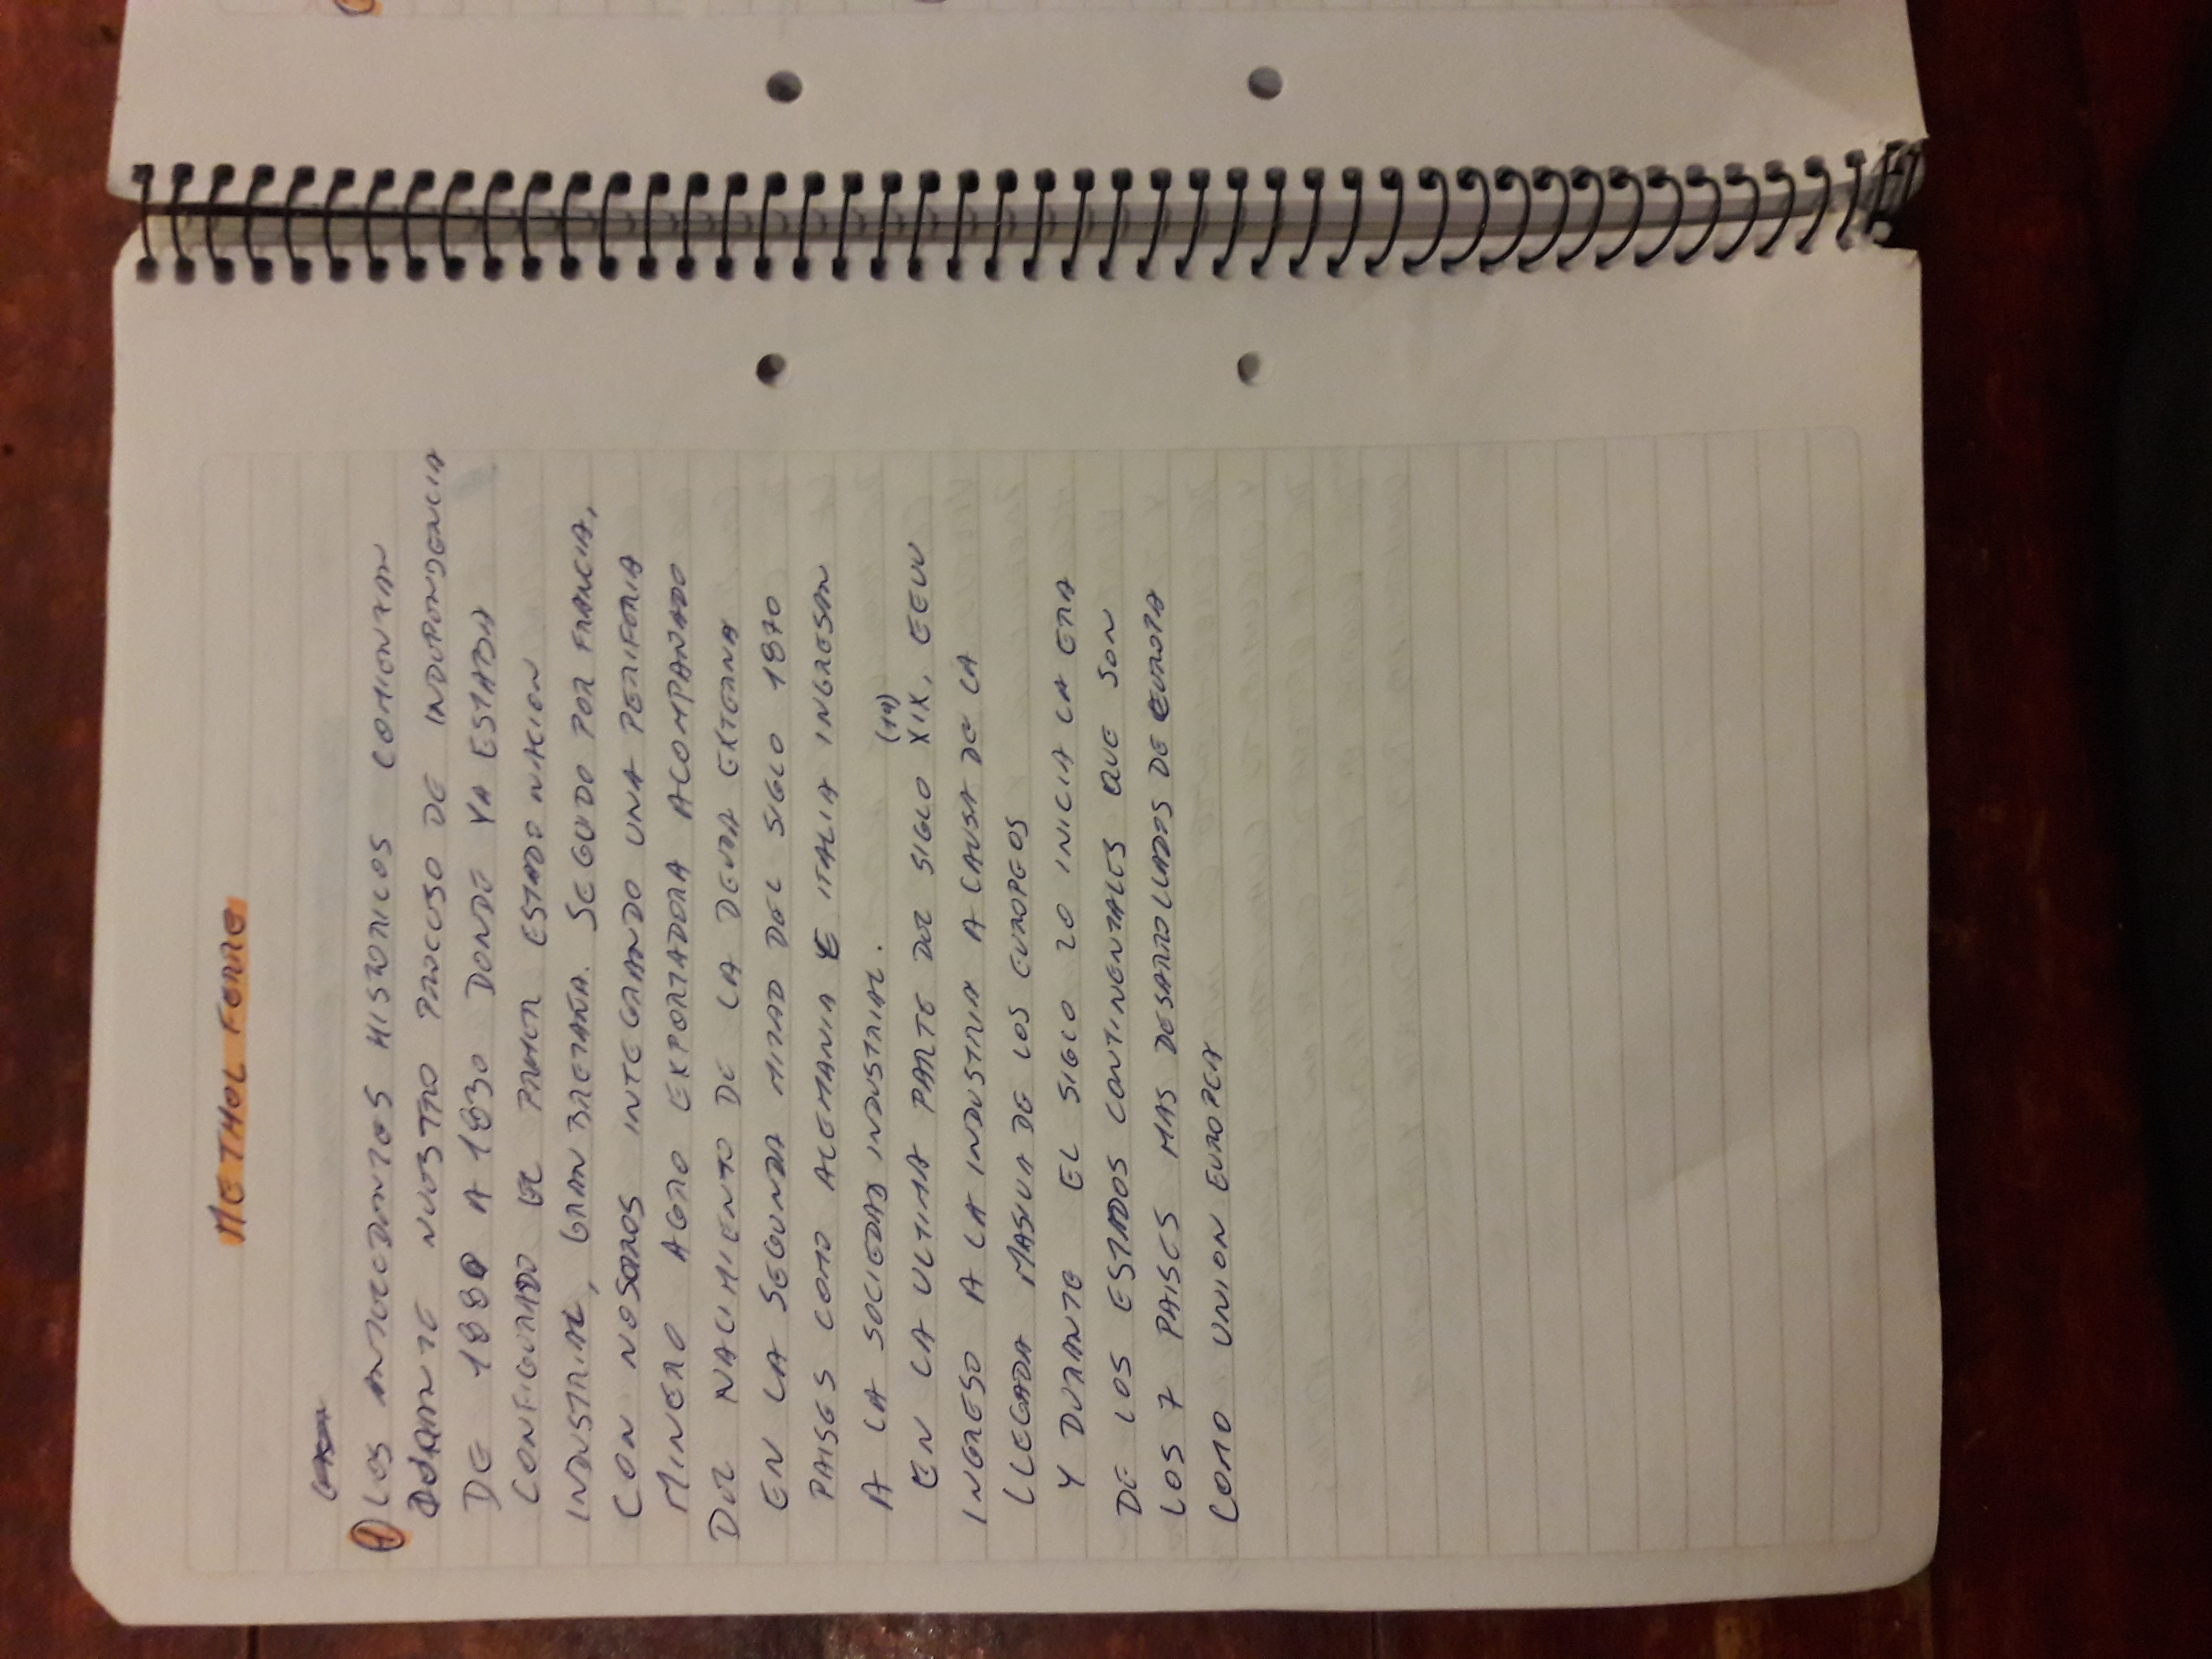 METHOL FERRE
① LOS ANTECEDENTES HISTORICOS COMIENZAN
DURANTE NUESTRO PROCESO DE INDEPENDENCIA
DE 1880 A 1830 DONDE YA ESTABA
CONFIGURADO EL PRIMER ESTADO NACION
INDUSTRIAL, GRAN BRETAÑA. SEGUIDO POR FRANCIA,
CON NOSOTROS INTEGRANDO UNA PERIFERIA
MINERO AGRO EXPORTADORA ACOMPANADO
DEL NACIMIENTO DE LA DEUDA EXTERNA
EN LA SEGUNDA MITAD DEL SIGLO 1870
PAISES COMO ALEMANIA E ITALIA INGRESAN
A LA SOCIEDAD INDUSTRIAL.
(19)
EN LA ULTIMA PARTE DEL SIGLO XIX, EEUU
INGRESO A LA INDUSTRIA A CAUSA DE LA
LLEGADA MASIVA DE LOS EUROPEOS
Y DURANTE EL SIGLO 20 INICIA LA ERA
DE LOS ESTADOS CONTINENTALES QUE SON
LOS 7 PAISES MAS DESARROLLADOS DE EUROPA
COMO UNION EUROPEA